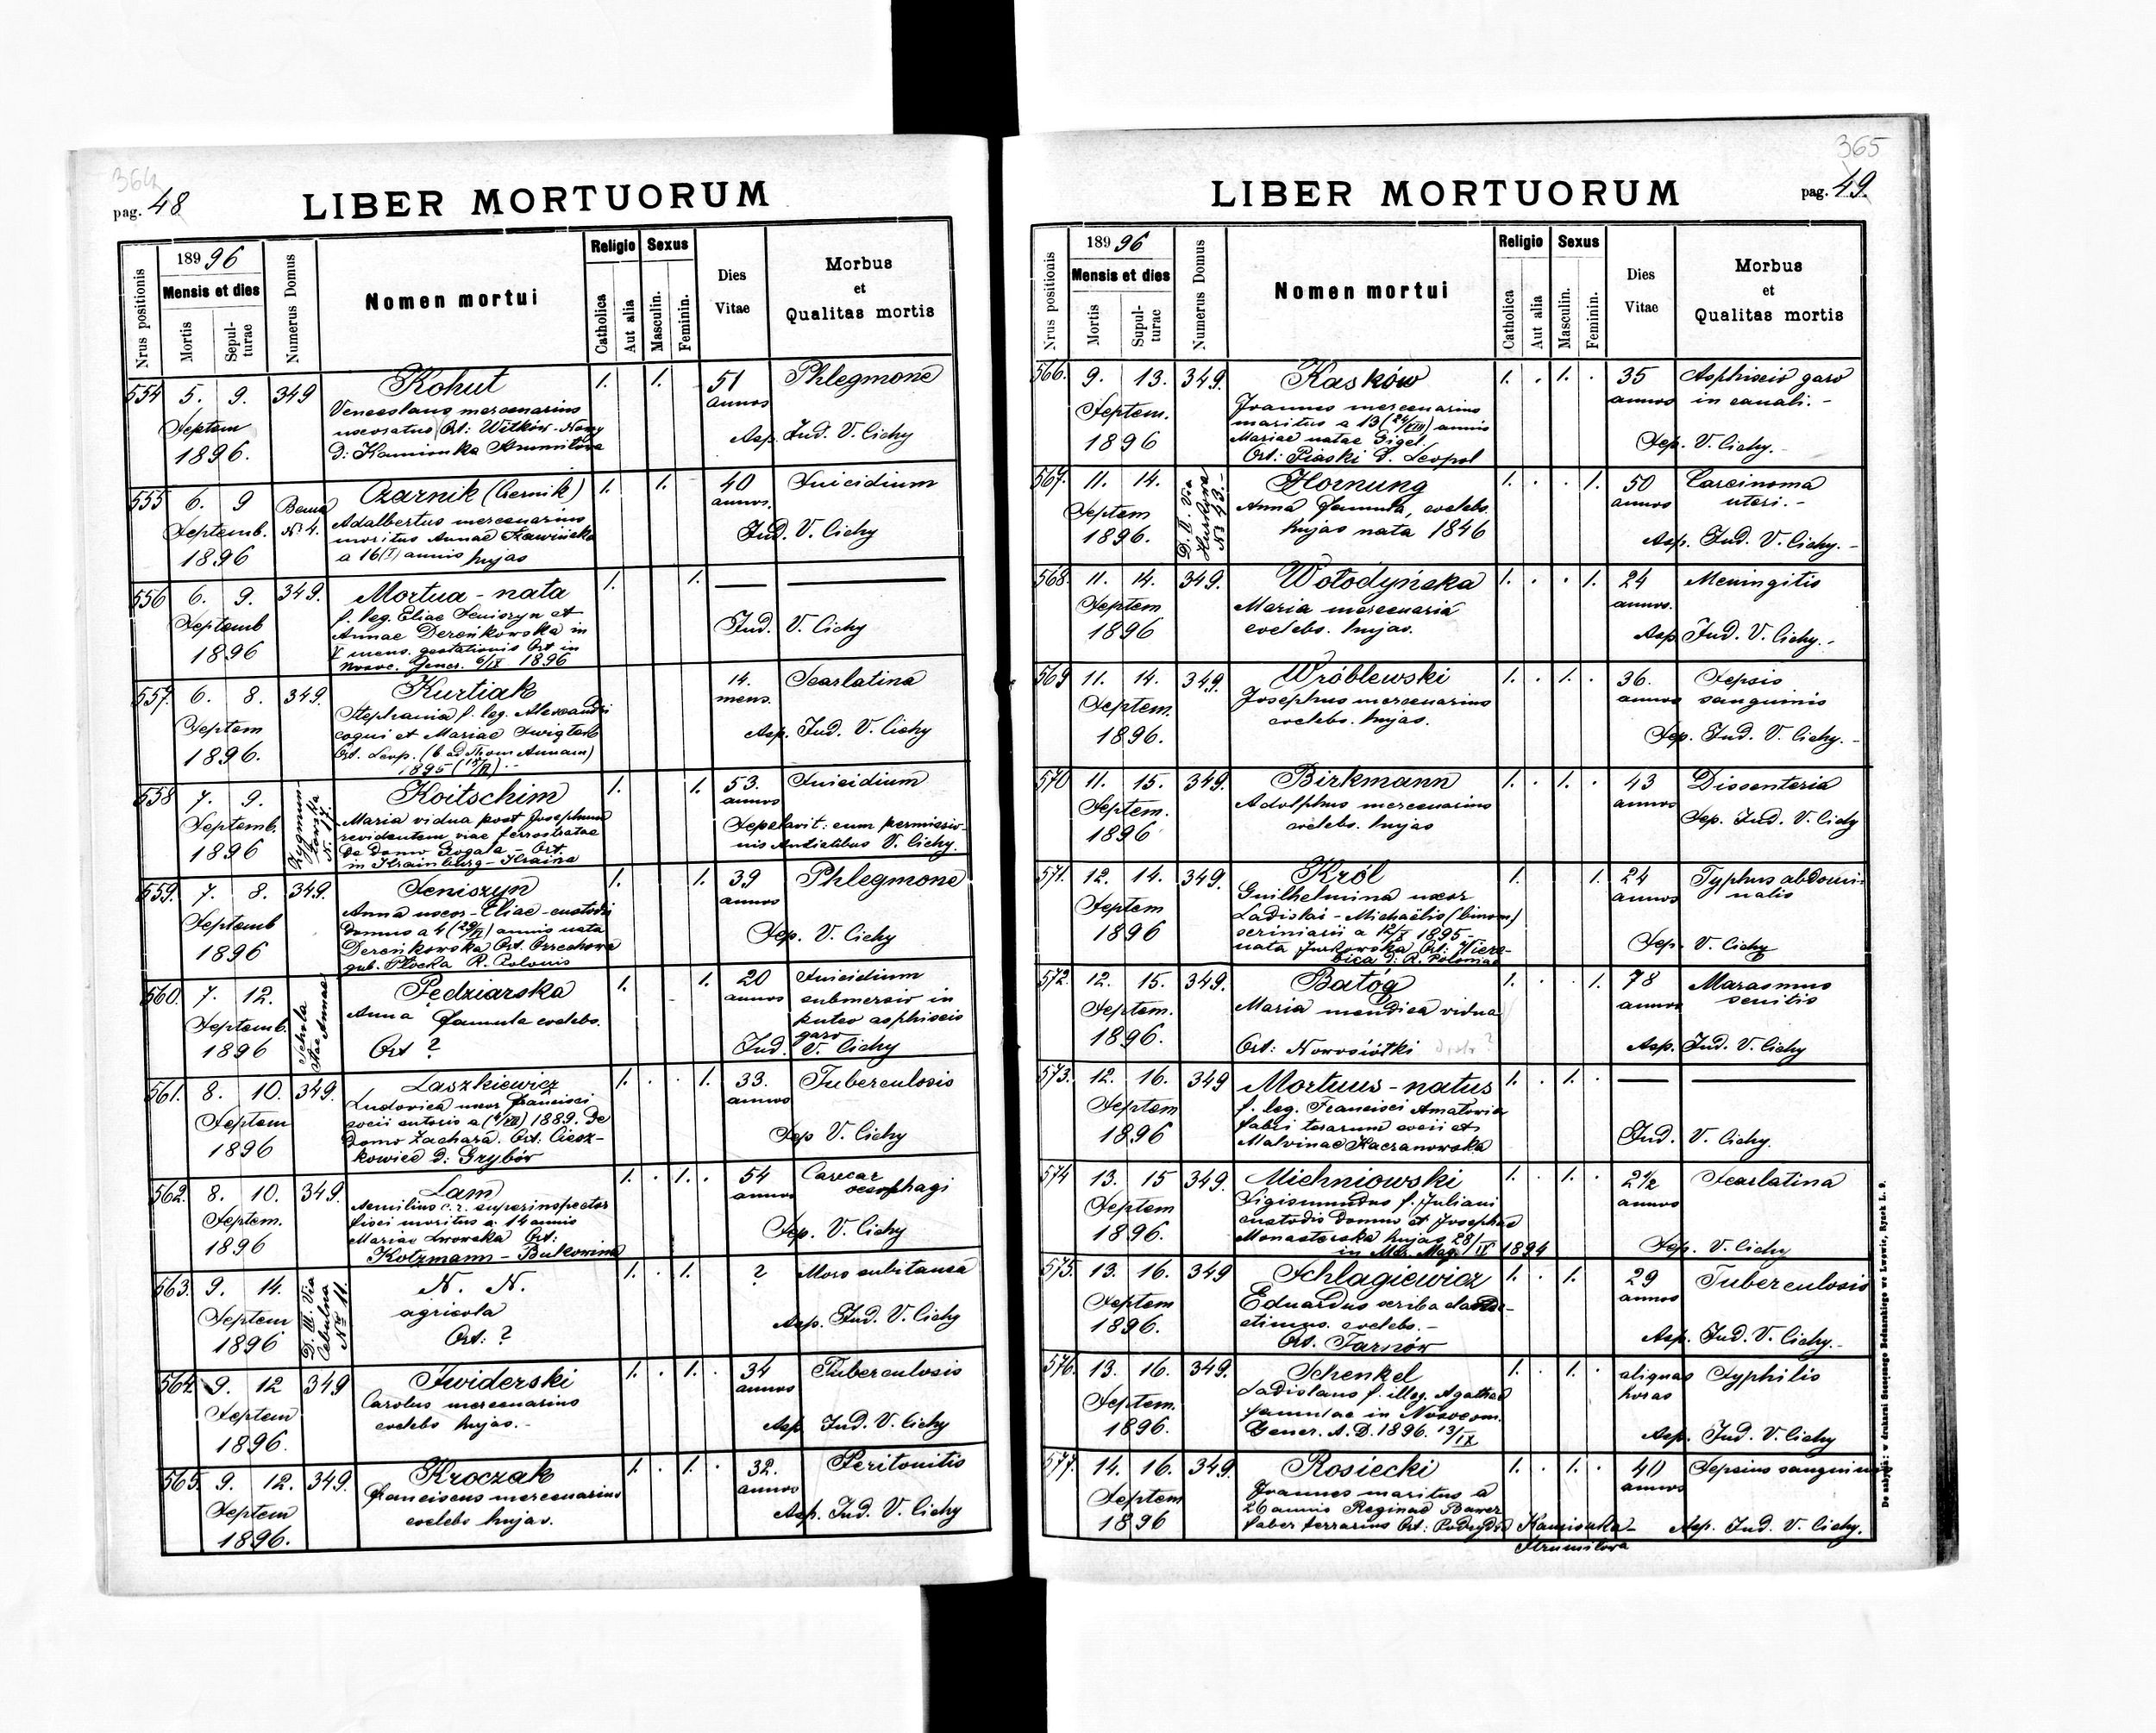 364
pag. 48
LIBER MORTUORUM
Nrus positionis
189 96
Mensis et dies
Mortis
Sepul-
turae
Numerus Domus
Nomen mortui
Religio
Catholica
Aut alia
Sexus
Masculin.
Feminin.
Dies
Vitae
Morbus
et
Qualitas mortis
554 5. 9. 349 Kohut 1. 1. 51 Phlegmone
Septem 1896. annos
Venceslaus mercenarius
uxoratus Ort: Witków-Nowy
d: Kamionka Strumiłowa
Asp. Ind. V. Cichy
555 6. 9 Bema Nr 4. Czarnik (Czernik) 1. 1. 40 Suicidium
Septemb. 1896 annos.
Adalbertus mercenarius
maritus Annae
a 16 (I) annis hujas
Ind. V. Cichy
556 6. 9. 349. Mortua-nata 1. 1. — —
Septemb 1896
f. leg. Eliae Seniszyn et
Annae Dereńkowska in
V mens. gestationis Ort in
Nosoc. Gener. 6/IX 1896
Ind. V. Cichy
557. 6. 8. 349. Kurtiak 14. mens. Scarlatina
Septem 1896.
Stephania f. leg. Alexandri
coqui et Mariae
Ort. Leop. (b ad Annam)
1895
Asp. Ind. V. Cichy
558 7. 9. Zygmuntowska N. 17. Koitschim 1. 1. 53. Suicidium
Septemb. 1896 annos
Maria vidua post Josephum
revidentem viae ferrostratae
De Domo Rogala - Ort.
in Krainburg - Kraina
Sepelavit: cum permissio-
nis V. Cichy.
559. 7. 8. 349. Seniszyn 1. 1. 39 Phlegmone
Septemb 1896 annos
Anna uxor - Eliae - custodis
domus a 4 annis nata
Dereńkowska Ort. Orzechowa
gub. Płocka R. Polonis
Sep. V. Cichy
560. 7. 12. Schola Stae Annae Pedziarska 1. 1. 20 Suicidium
Septemb. 1896 annos submersio in
Anna famula coelebs. puteo asphixio
Ort ? gaso
Ind. V. Cichy
561. 8. 10. 349. Laszkiewicz 1. . . 1. 33. Tuberculosis
Septem 1896 annos
Ludovica uxor Francisci
socii sutoris a 1889. De
Domo Zachara. Ort. Ciesz-
kowice d: Grybów
Sep V. Cichy
562. 8. 10. 349. Lam 1. . 1. . 54 Cancar
Septem. 1896 annos oesophagi
Aemilius c. r. superinspector
fisci maritus a 14 annis
Mariae Lwowska Ort:
Kotzmann - Bukowina
Sep. V. Cichy
563. 9. 14. D. III. Via Cebulna Nr 11. N. N. 1. . 1. ? Mors subitanea
Septem 1896
agricola
Ort: ?
Asp. Ind. V. Cichy
564. 9. 12 349 Swiderski 1. . 1. . 34 Tuberculosis
Septem 1896. annos
Carolus mercenarius
coelebs hujas.-
Asp. Ind. V. Cichy
565. 9. 12. 349. Kroczak 1. . 1. . 32. Peritonitis
Septem 1896. annos
Franciscus mercenarius
coelebs hujas.
Asp. Ind. V. Cichy
365
pag. 49.
LIBER MORTUORUM
Nrus positionis
189 96
Mensis et dies
Mortis
Supul-
turae
Numerus Domus
Nomen mortui
Religio
Catholica
Aut alia
Sexus
Masculin.
Feminin.
Dies
Vitae
Morbus
et
Qualitas mortis
566. 9. 13. 349. Kasków 1. . 1. . 35 Asphixio gaso
Septem. 1896 annos in canali.-
Joannes mercenarius
maritus a 13 (24/VIII) annis
Mariae natae Gigel.
Ort: Piaski d. Leopol
Sep. V. Cichy.-
567. 11. 14. D. II. Via Nr 43.- Hornung 1. . . 1. 50 Carcinoma
Septem 1896. annos uteri.-
Anna famula, coelebs.
hujas nata 1846
Asp. Ind. V. Cichy.-
568. 11. 14. 349. Wołodyńska 1. . . 1. 24 Meningitis
Septem 1896 annos.
Maria mercenaria
coelebs. hujas.
Asp. Ind. V. Cichy.-
569 11. 14. 349. Wróblewski 1. . 1. . 36. Sepsis
Septem. 1896. annos sanguinis
Josephus mercenarius
coelebs. hujas.
Sep. Ind. V. Cichy.-
570 11. 15. 349. Birkmann 1. . 1. . 43 Dissenteria
Septem. 1896 annos
Adolphus mercenarius
coelebs. hujas
Sep. Ind. V. Cichy
571. 12. 14. 349. Król 1. 1. 24 Typhus abdomi-
Septem 1896 annos nalis
Guilhelmina uxor
Ladislai - Michaëlis (binom)
scriniarii a 12/X 1895-
nata Jurkowska Ort: Wierz-
bica d: R. Poloniae
Sep. V. Cichy
572. 12. 15. 349. Batóg 1. . . 1. 78 Marasmus
Septem. 1896. annos senilis
Maria mendica vidua
Ort: Nowosiółki distr ?
Asp. Ind. V. Cichy
573. 12. 16. 349 Mortuus-natus 1. . 1. . — —
Septem 1896
f. leg. Francisci
fabri socii et
Malvinae Kaczanowska
Ind. V. Cichy.
574 13. 15 349. Michniowski 1. . 1. . 2 1/2 Scarlatina
Septem 1896. annos
Sigismundus f. Juliani
custodis domus et Josephae
Monasterska hujas 28/IX 1894
in Mar. Mag.
Sep. V. Cichy
575. 13. 16. 349 Schlagiewicz 1. . 1. 29 Tuberculosis
Septem 1896. annos
Eduardus scriba
coelebs.-
Ort. Tarnów
Asp. Ind. V. Cichy.-
576. 13. 16. 349. Schenkel 1. . 1. . aliquas Syphilis
Septem. 1896. horas
Ladislaus f. illeg. Agathae
famulae in Nosocom.
Gener. A. D. 1896. 13/IX
Asp. Ind. V. Cichy
577. 14. 16. 349. Rosiecki 1. . 1. . 40 Sepsius sanguinis
Septem 1896 annos
Joannes maritus a
26 annis Reginae Bawer
faber ferrarius Ort: Kamionka-
Strumiłowa
Asp. Ind. V. Cichy.
Do nabycia: w drukarni Szczęsnego Bednarskiego we Lwowie, Rynek L. 9.